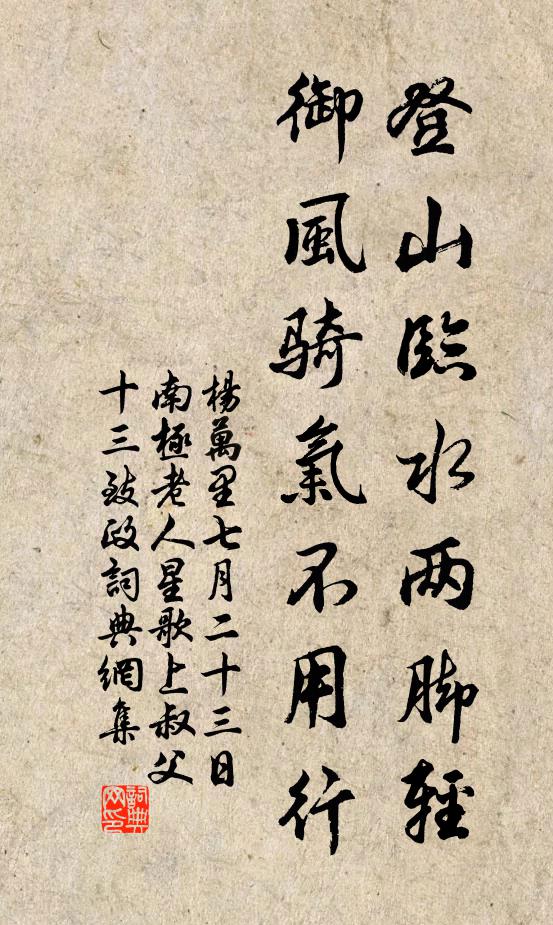 登山臨水两脚輕
御風騎氣不用行
楊萬里七月二十三日
南極老人星歌上叔父
十三致政詞典網集
詞典网印